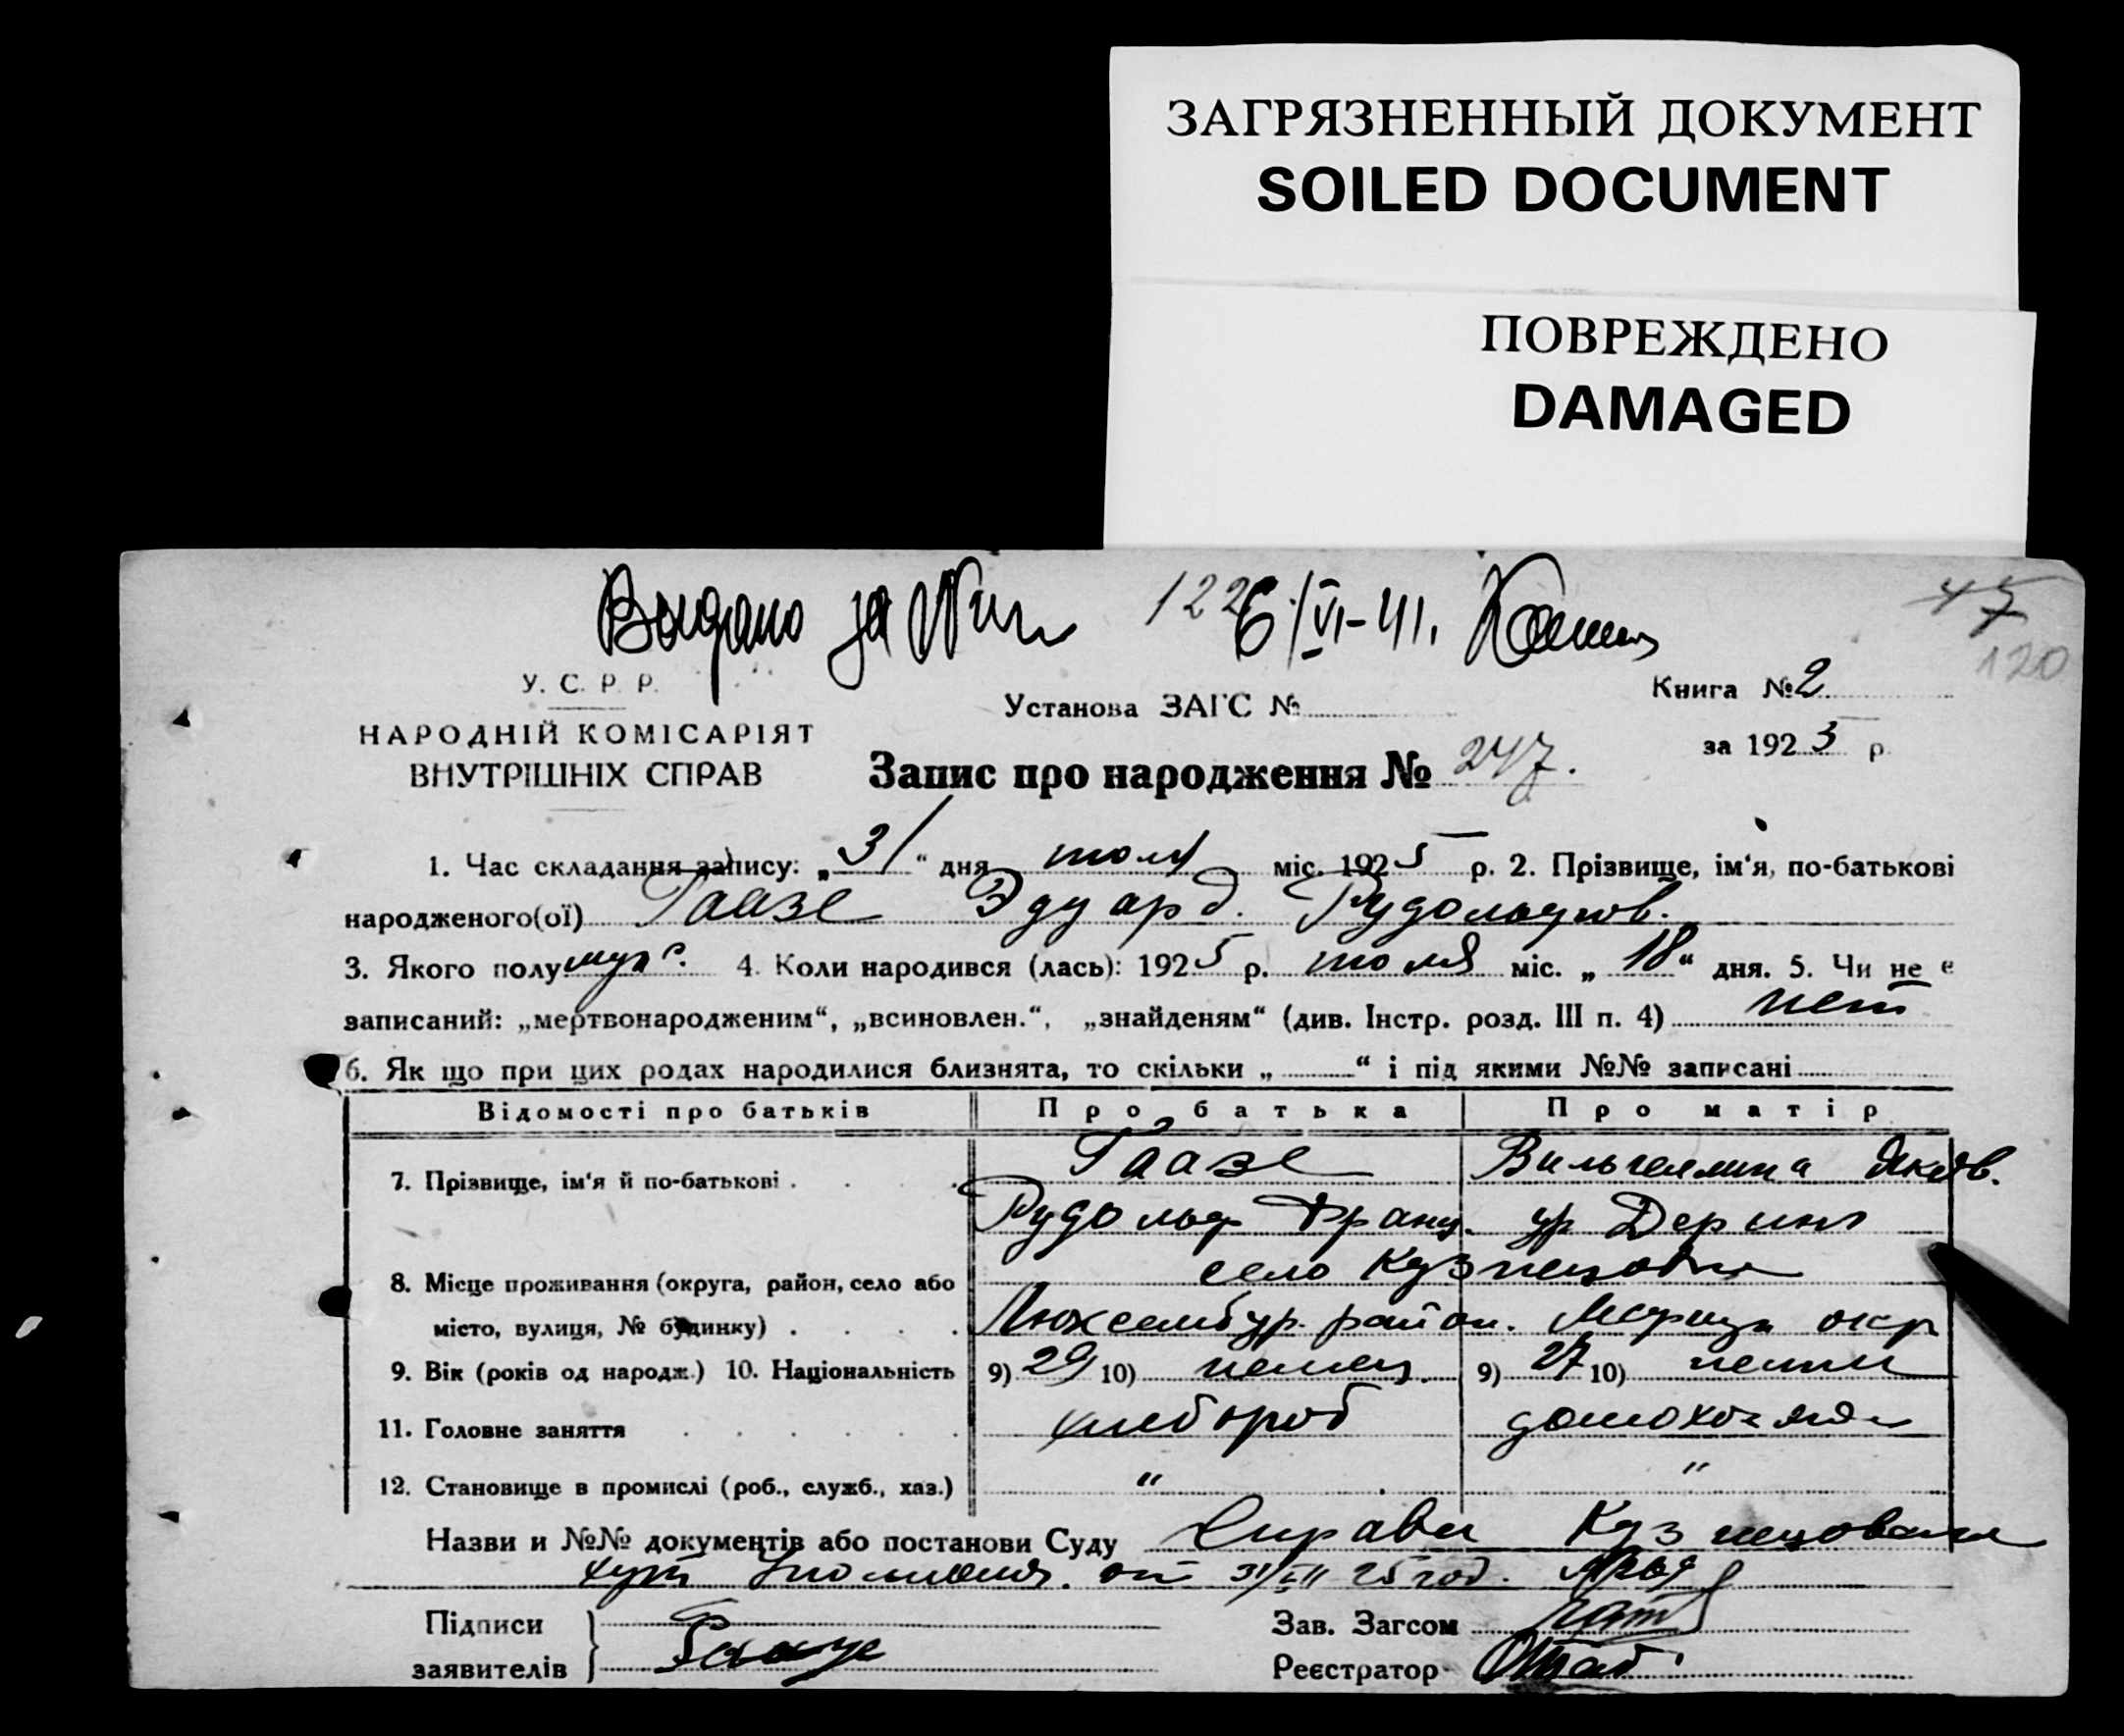 ЗАГРЯЗНЕННЫЙ ДОКУМЕНТ
SOILED DOCUMENT
ПОВРЕЖДЕНО
DAMAGED
Выдано за 122 6/VI-41.
47
120
У. С. Р. Р.
НАРОДНІЙ КОМІСАРІЯТ
ВНУТРІШНІХ СПРАВ
Установа ЗАГС №
Книга № 2
за 1925 р.
Запис про народження № 247.
1. Час складання запису: „31“ дня июля міс. 1925 р. 2. Прізвище, ім‘я, по-батькові
народженого(ої) Гаазе Эдуард. Рудольфов.
3. Якого полу муж. 4. Коли народився (лась): 1925 р. июля міс. „18“ дня. 5. Чи не є
записаний: „мертвонародженим“, „всиновлен.“, „знайденям“ (див. Інстр. розд. III п. 4) нет
6. Як що при цих родах народилися близнята, то скільки „ “ і під якими №№ записані
Відомості про батьків Про батька Про матір
7. Прізвище, ім‘я й по-батькові . Гаазе Вильгелмина Яков.
Рудольф Франц. ур Деринг
8. Місце проживання (округа, район, село або село Кузнецовка
місто, вулиця, № будинку) . Люксембур. район. Мариуп окр
9. Вік (років од народж.) 10. Національність 9) 29 10) немец. 9) 27 10) немки
11. Головне заняття хлебороб домохозяйк
12. Становище в промислі (роб., служб., хаз.) " "
Назви и №№ документів або постанови Суду Справка Кузнецовский
от 31/VII 25 год.
Підписи
заявителів
Зав. Загсом
Реєстратор